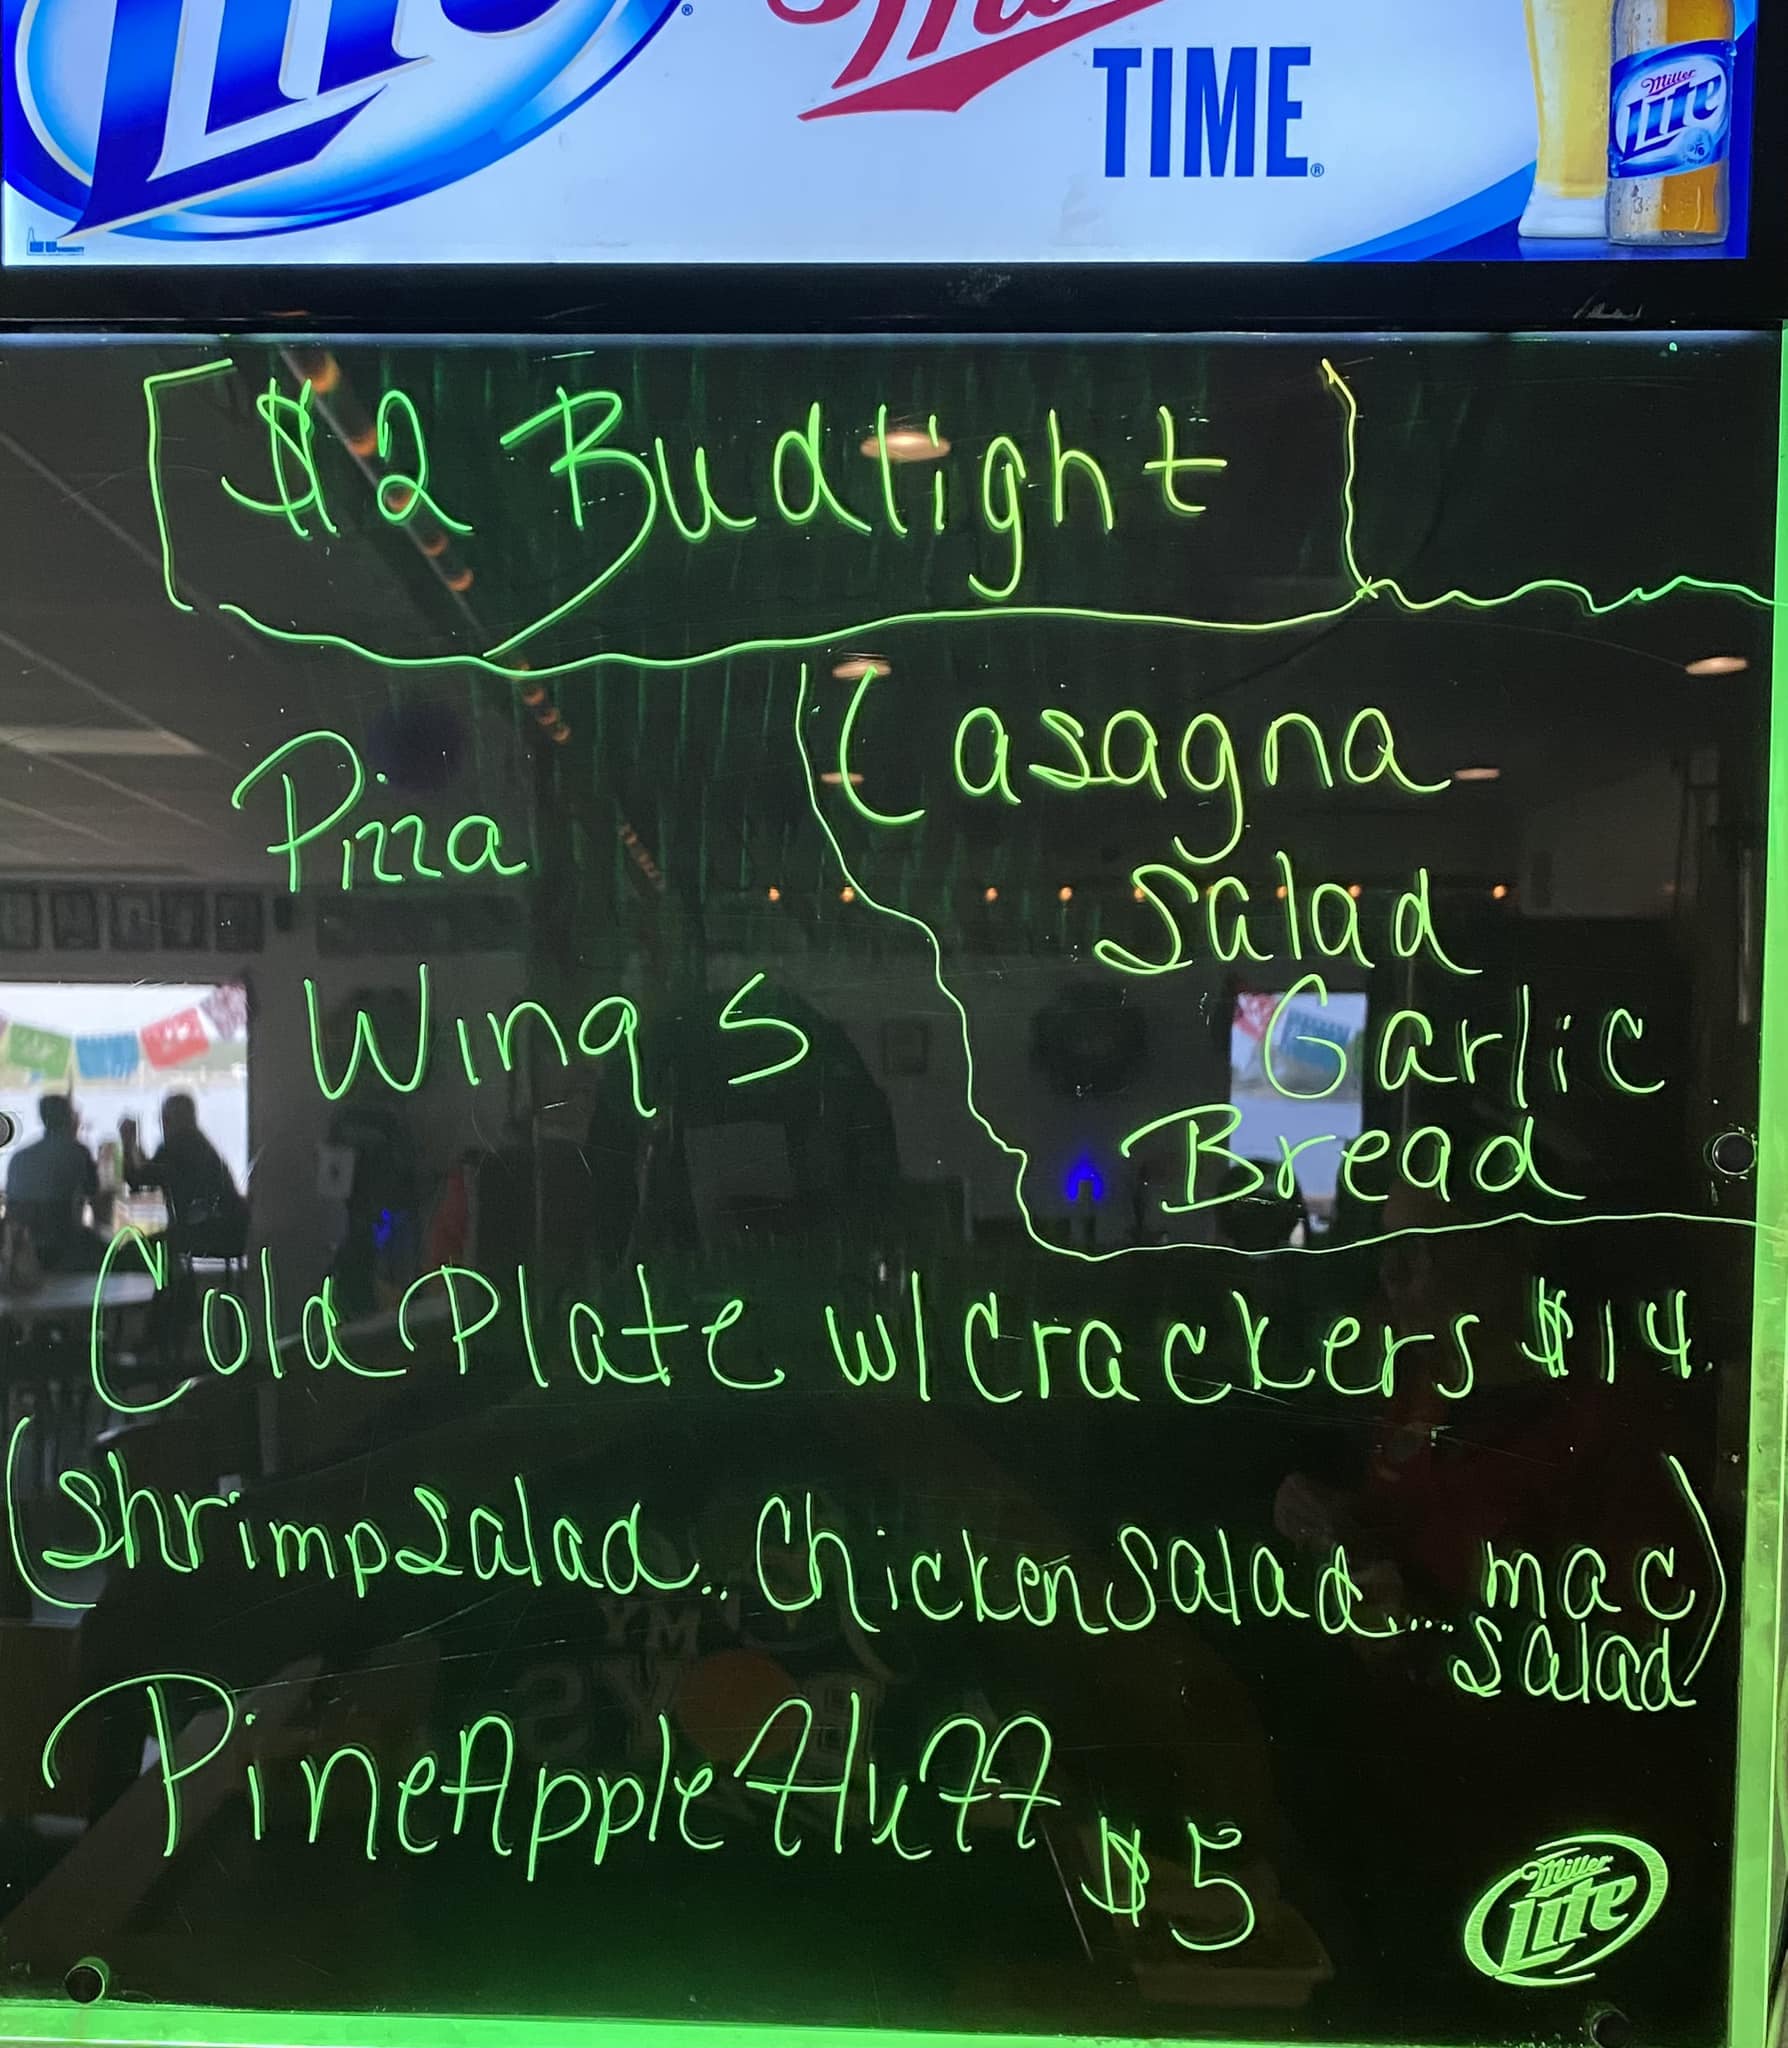 Lite
Miller
TIME
Miller
Lite
$2 Budlight
Pizza
Wings
Lasagna
Salad
Garlic
Bread
Cold Plate w/ crackers $14.
(Shrimp salad.. Chicken Salad.... mac
salad)
PineApple fluff
$5
Miller
Lite
MY
BOYS